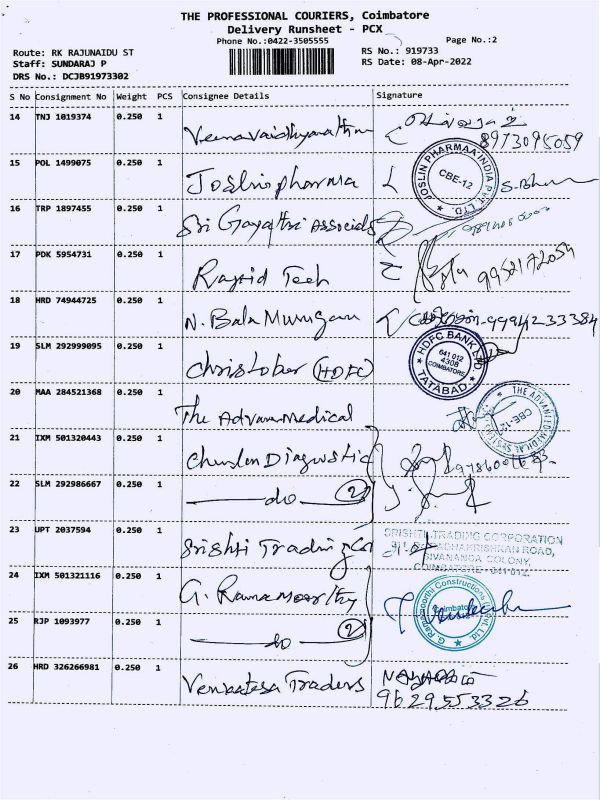 THE PROFESSIONAL COURIERS, Coimbatore
Delivery Runsheet - PCX
Phone No.:0422-3505555
Page No.:2
Route: RK RAJUNAIDU ST
RS No.: 919733
Staff: SUNDARAJ P
RS Date: 08-Apr-2022
DRS No.: DCJB91973302
S No Consignment No Weight PCS Consignee Details Signature
14 TNJ 1019374 0.250 1 Veenavaidhyanathan
8973095059
15 POL 1499075 0.250 1 Joslinpharma
JOSLIN PHARMAA INDIA PVT. LTD. CBE-12
16 TRP 1897455 0.250 1 Sri Gayathri Associats
17 PDK 5954731 0.250 1 Rapid Tech 9952172059
18 HRD 74944725 0.250 1 N. Bala Murugan
19 SLM 292999095 0.250 1 Christober (HDFC)
HDFC BANK LTD 641 012 4308 COIMBATORE TATABAD
20 MAA 284521368 0.250 1 The Advance Medical
CBE-12
21 IXM 501320443 0.250 1 Diagnostic
22 SLM 292986667 0.250 1 do (2)
23 UPT 2037594 0.250 1 Srishti Trading Co
SRISHTI TRADING CORPORATION
SIVANANDA COLONY,
COIMBATORE - 641 012.
24 IXM 501321116 0.250 1 G. Ramamoorthy
G. Ramamoorthy Constructions Pvt. Ltd. Coimbatore
25 RJP 1093977 0.250 1 do (2)
26 HRD 326266981 0.250 1 Venkatesa Traders
9629553326